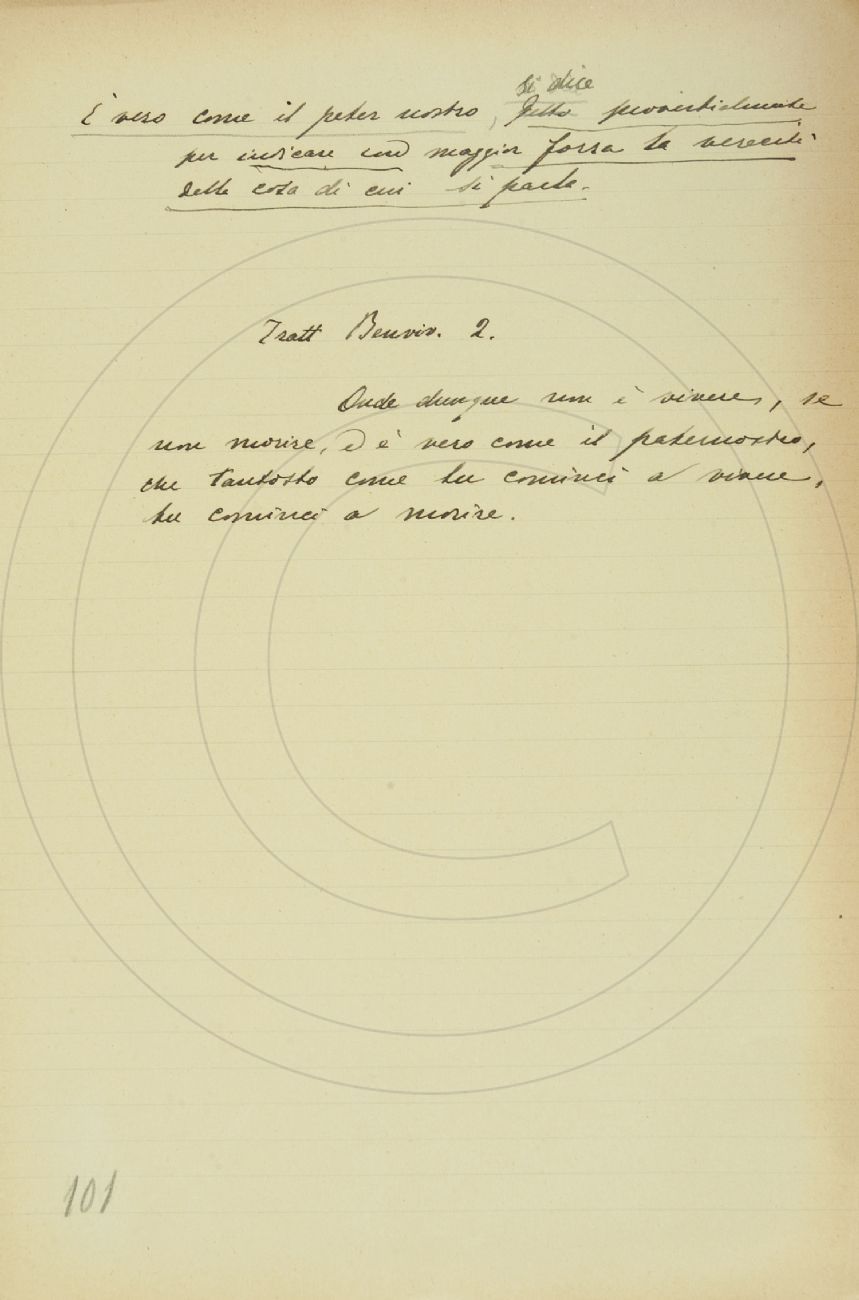 si dice
È vero come il pater nostro, Detto proverbialmente
per indicare con maggior forza la veracità
della cosa di cui si parla.
Tratt Benviv. 2.
Onde dunque non è vivere, se
non morire, ed è vero come il paternostro,
che tantosto come tu cominci a vivere,
tu cominci a morire.
101